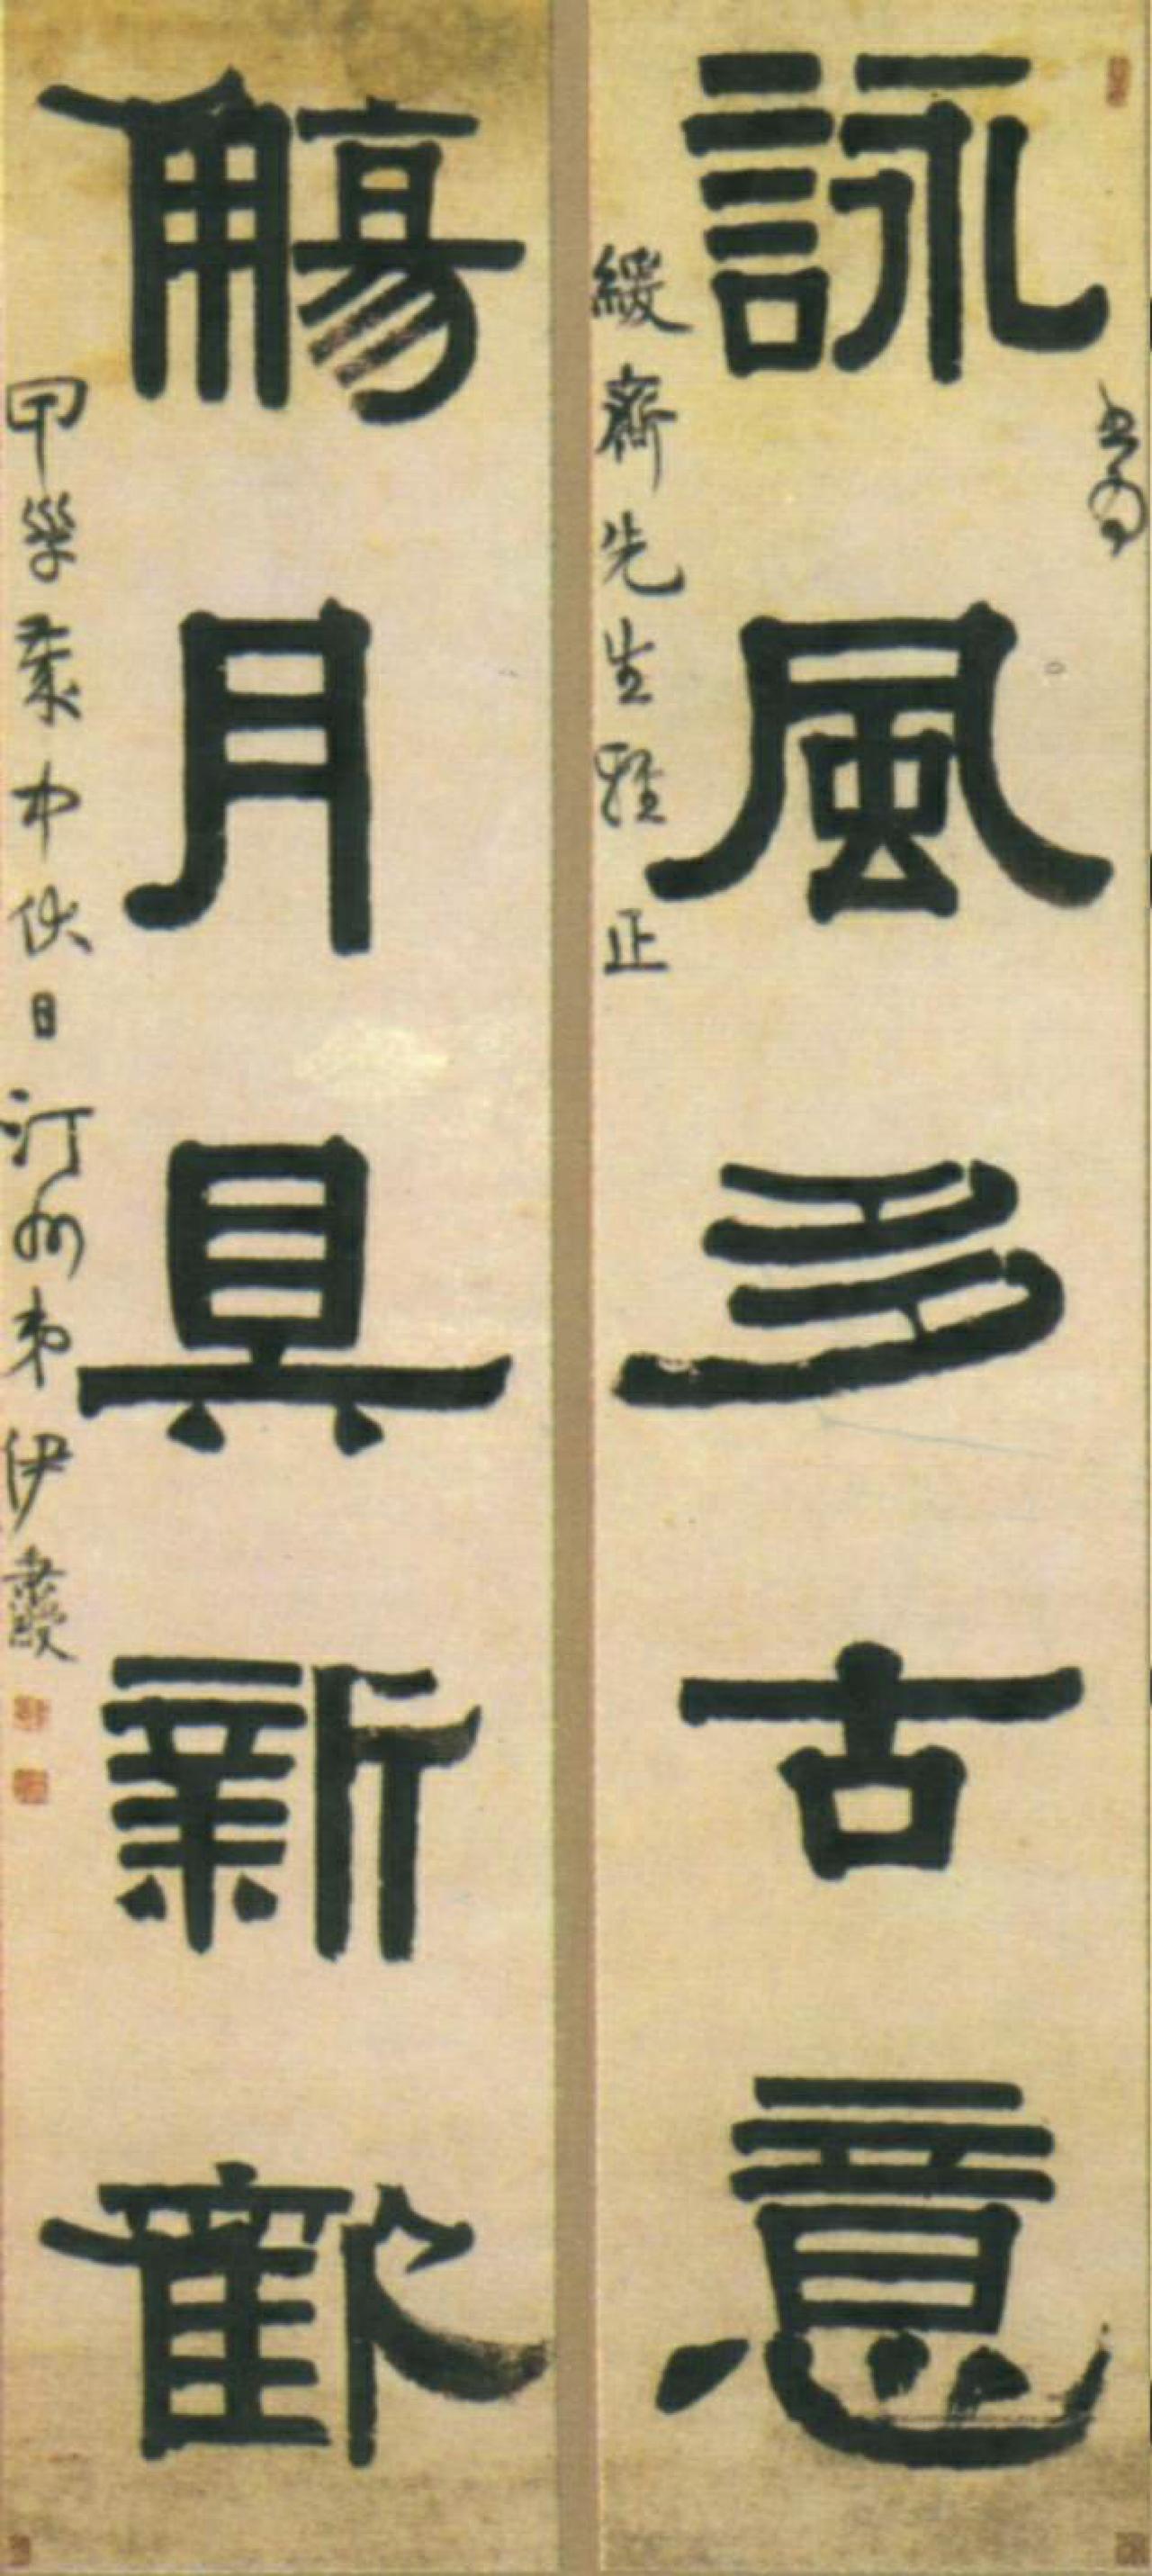 詠風多古意
書為
緩齋先生雅正
觴月具新歡
甲
中伏日汀州弟伊秉綬